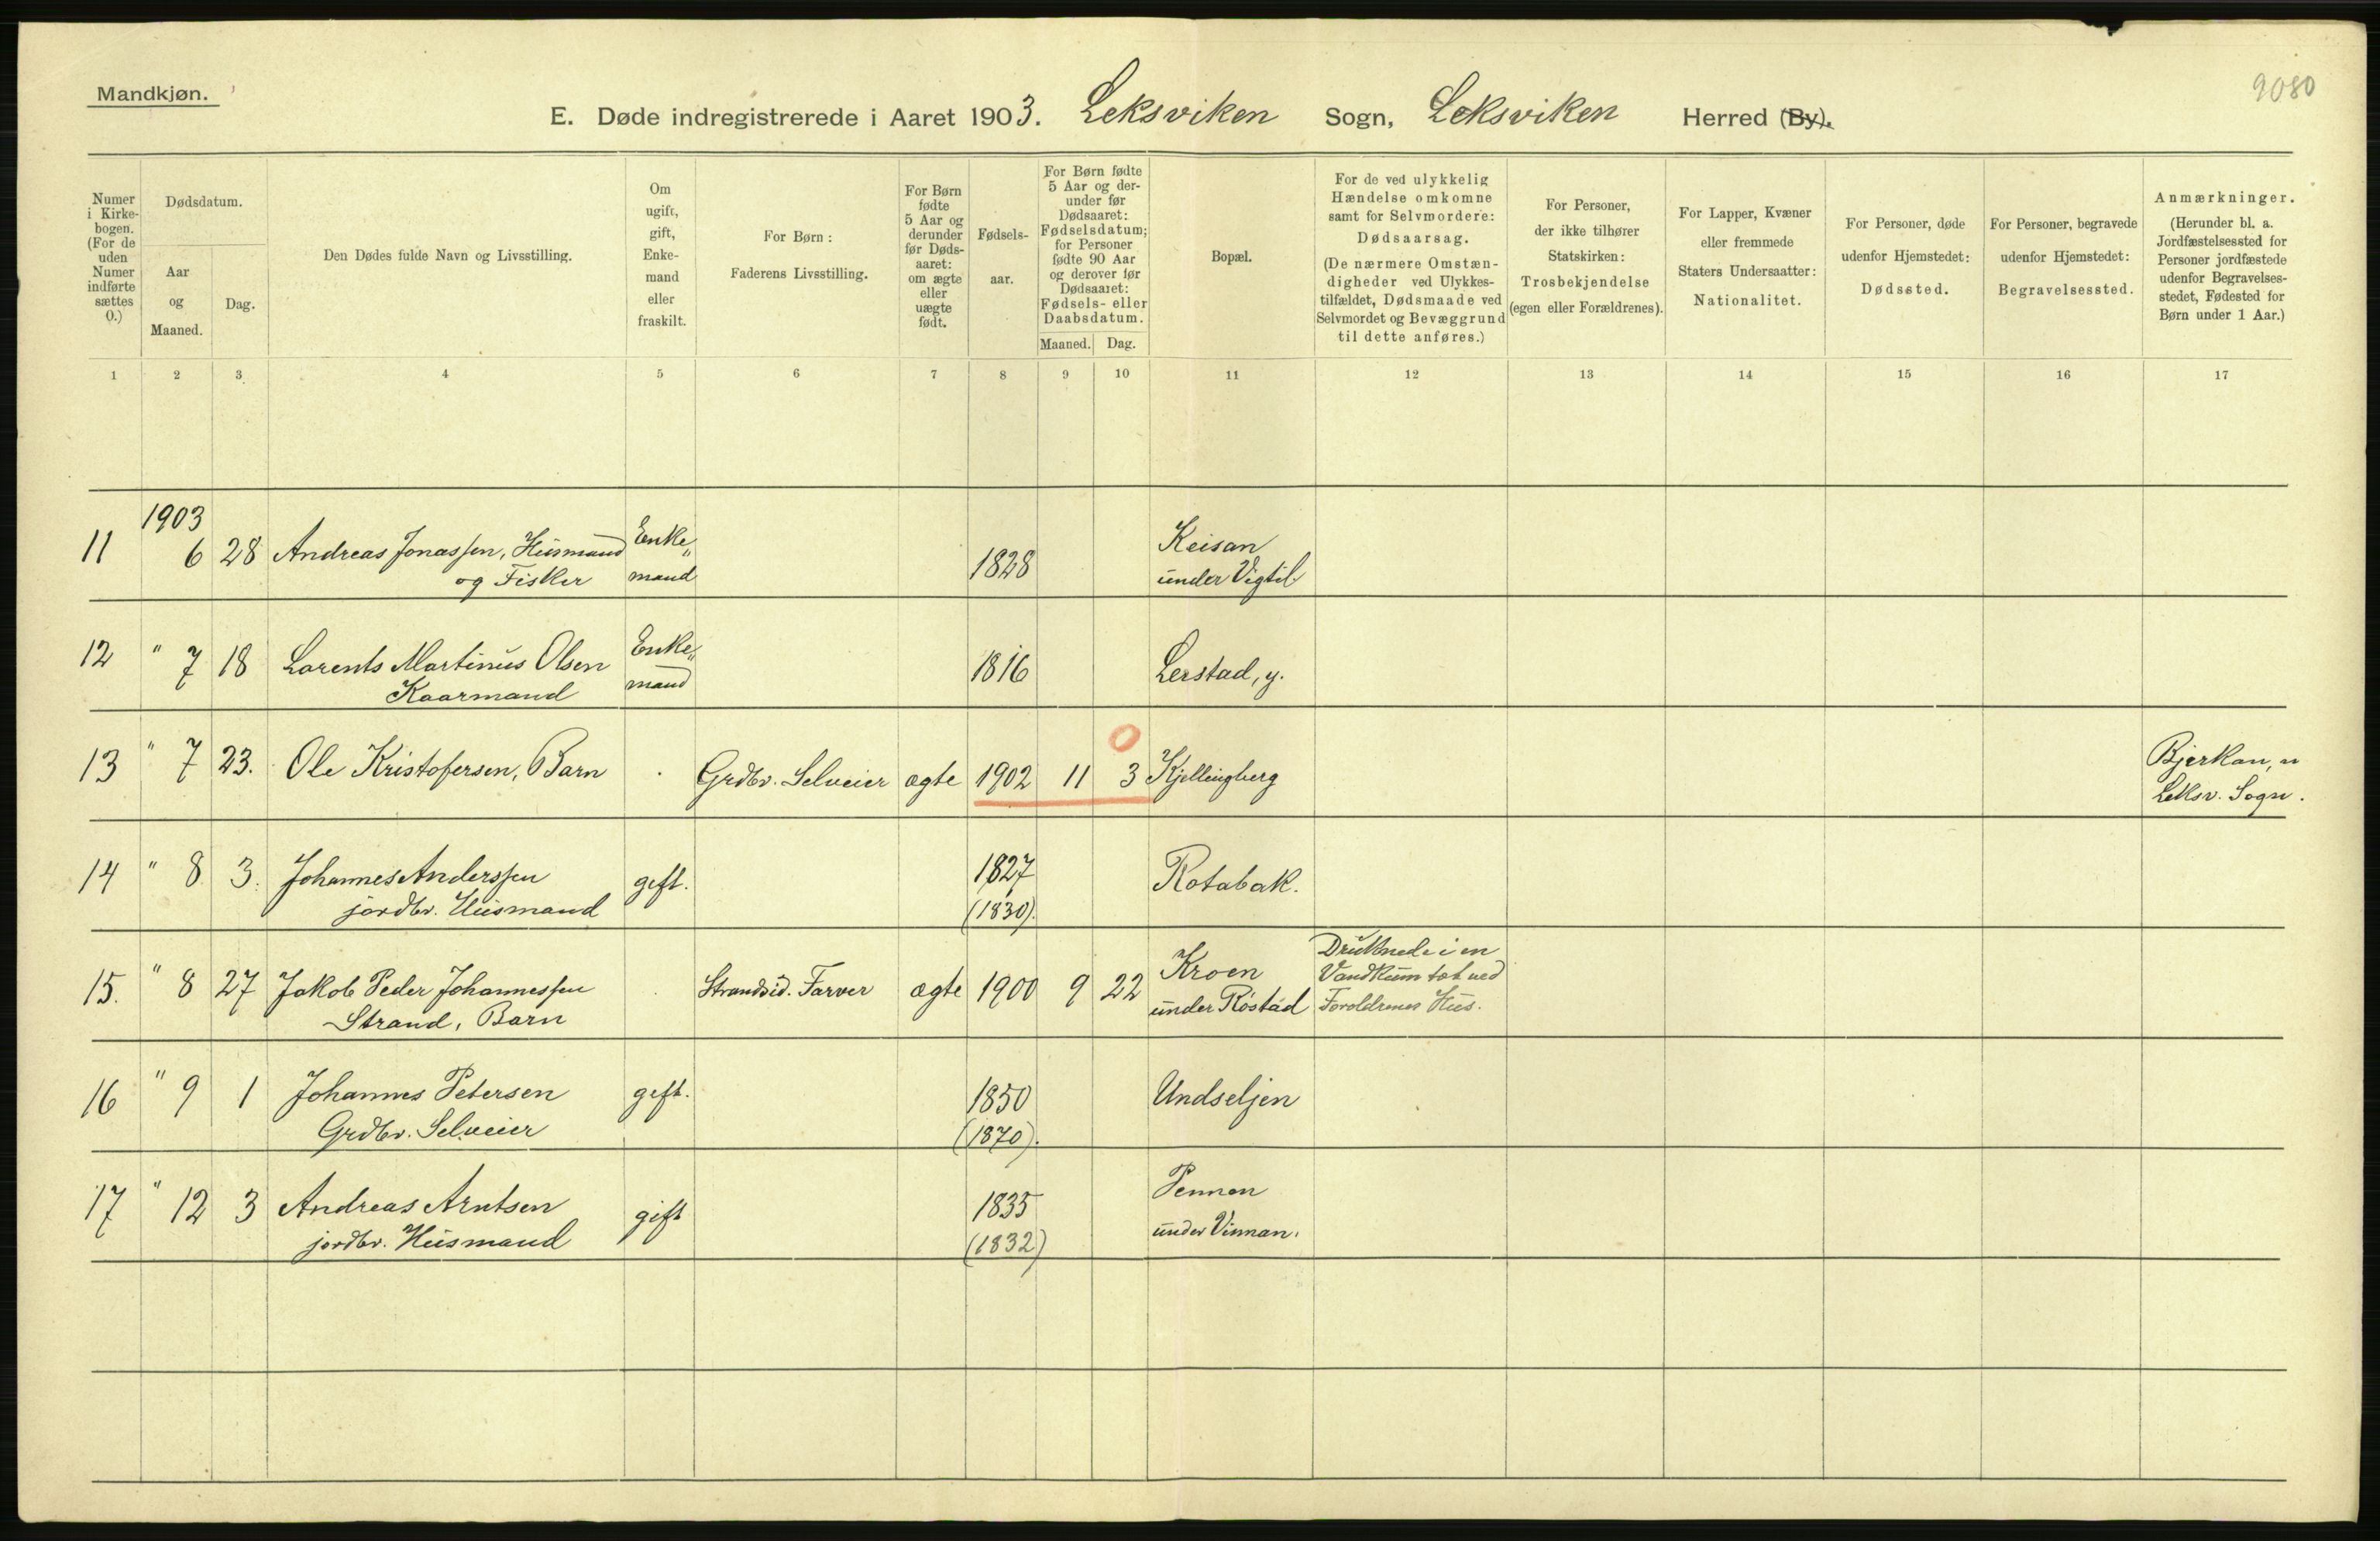 Mandkjøn.
9080
E. Døde indregistrerede i Aaret 1903. Leksviken Sogn, Leksviken Herred (By).
Numer
i Kirke-
bogen.
(For de
uden
Numer
indførte
sættes
0.)
Dødsdatum.
Aar
og
Maaned.
Dag.
Den Dødes fulde Navn og Livsstilling.
Om
ugift,
gift,
Enke-
mand
eller
fraskilt.
For Børn:
Faderens Livsstilling.
For Børn
fødte
5 Aar og
derunder
før Døds-
aaret:
om ægte
eller
uægte
født.
Fødsels-
aar.
For Børn fødte
5 Aar og der-
under før
Dødsaaret:
Fødselsdatum;
for Personer
fødte 90 Aar
og derover før
Dødsaaret:
Fødsels- eller
Daabsdatum.
Maaned. Dag.
Bopæl.
For de ved ulykkelig
Hændelse omkomne
samt for Selvmordere:
Dødsaarsag.
(De nærmere Omstæn-
digheder ved Ulykkes-
tilfældet, Dødsmaade ved
Selvmordet og Bevæggrund
til dette anføres.)
For Personer,
der ikke tilhører
Statskirken:
Trosbekjendelse
(egen eller Forældrenes).
For Lapper, Kvæner
eller fremmede
Staters Undersaatter:
Nationalitet.
For Personer, døde
udenfor Hjemstedet:
Dødssted.
For Personer, begravede
udenfor Hjemstedet:
Begravelsessted.
Anmærkninger.
(Herunder bl. a.
Jordfæstelsessted for
Personer jordfæstede
udenfor Begravelses-
stedet, Fødested for
Børn under 1 Aar.)
1 2 3 4 5 6 7 8 9 10 11 12 13 14 15 16 17
1903
11 6 28 Andreas Jonassen, Husmand Enke„ 1828 Keisan
og Fisker mand under Vigtil
12 " 7 18 Lorents Martinus Olsen Enke„ 1816 Lerstad, y.
Kaarmand mand
0
13 " 7 23. Ole Kristofersen, Barn Grdbr. Selveier ægte 1902 11 3 Kjellingberg Bjerkan, n
Leksv. Sogn.
14 " 8 3. Johannes Anderssen gift. 1827 Rotabak.
jordbr. Husmand (1830).
15. " 8 27 Jakob Peder Johannessen Strandsid. Farver ægte 1900 9 22 Kroen Druknede i en
Vandkum tæt ved
Strand, Barn under Røstad Forældrenes Hus.
16 " 9 1 Johannes Petersen gift. 1850 Undseljen
Grdbr. Selveier (1870).
17 " 12 3 Andreas Arntsen gift 1835 Pennen
jordbr. Husmand (1832) under Vinnan.